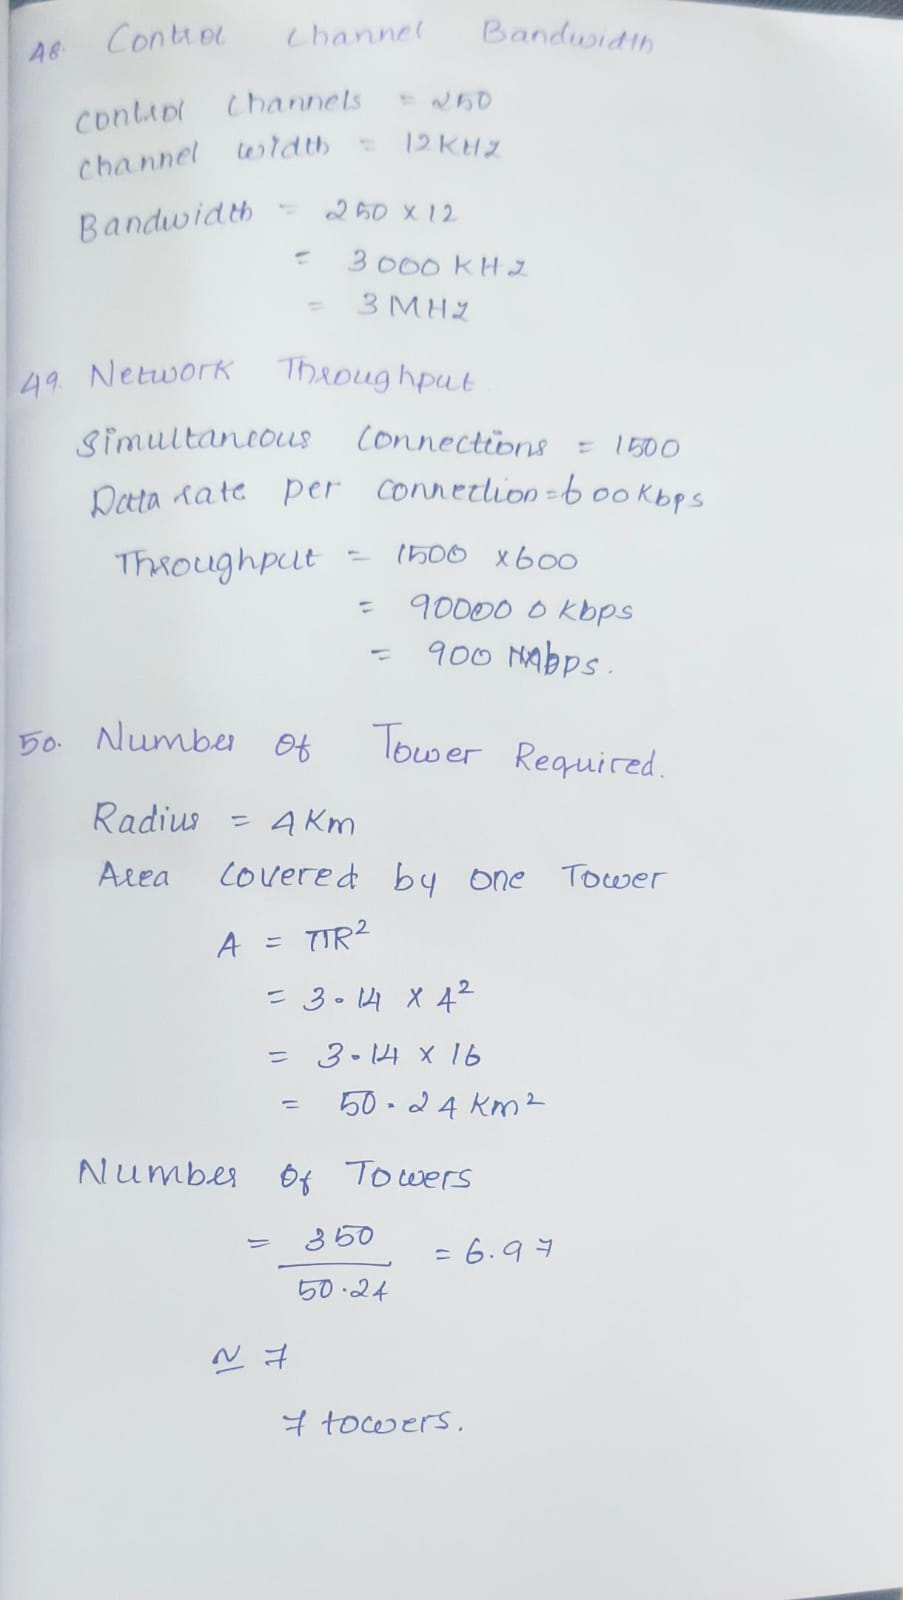 48. Control Channel Bandwidth
Control Channels = 250
Channel width = 12 KHz
Bandwidth = 250 x 12
= 3000 KHz
= 3 MHz
49. Network Throughput
Simultaneous Connections = 1500
Data rate per connection = 600 Kbps
Throughput = 1500 x 600
= 900000 Kbps
= 900 Mbps.
50. Number Of Tower Required.
Radius = 4 Km
Area Covered by one Tower
A = πR²
= 3.14 x 4²
= 3.14 x 16
= 50.24 Km²
Number Of Towers
= 350 / 50.24 = 6.97
≃ 7
7 towers.